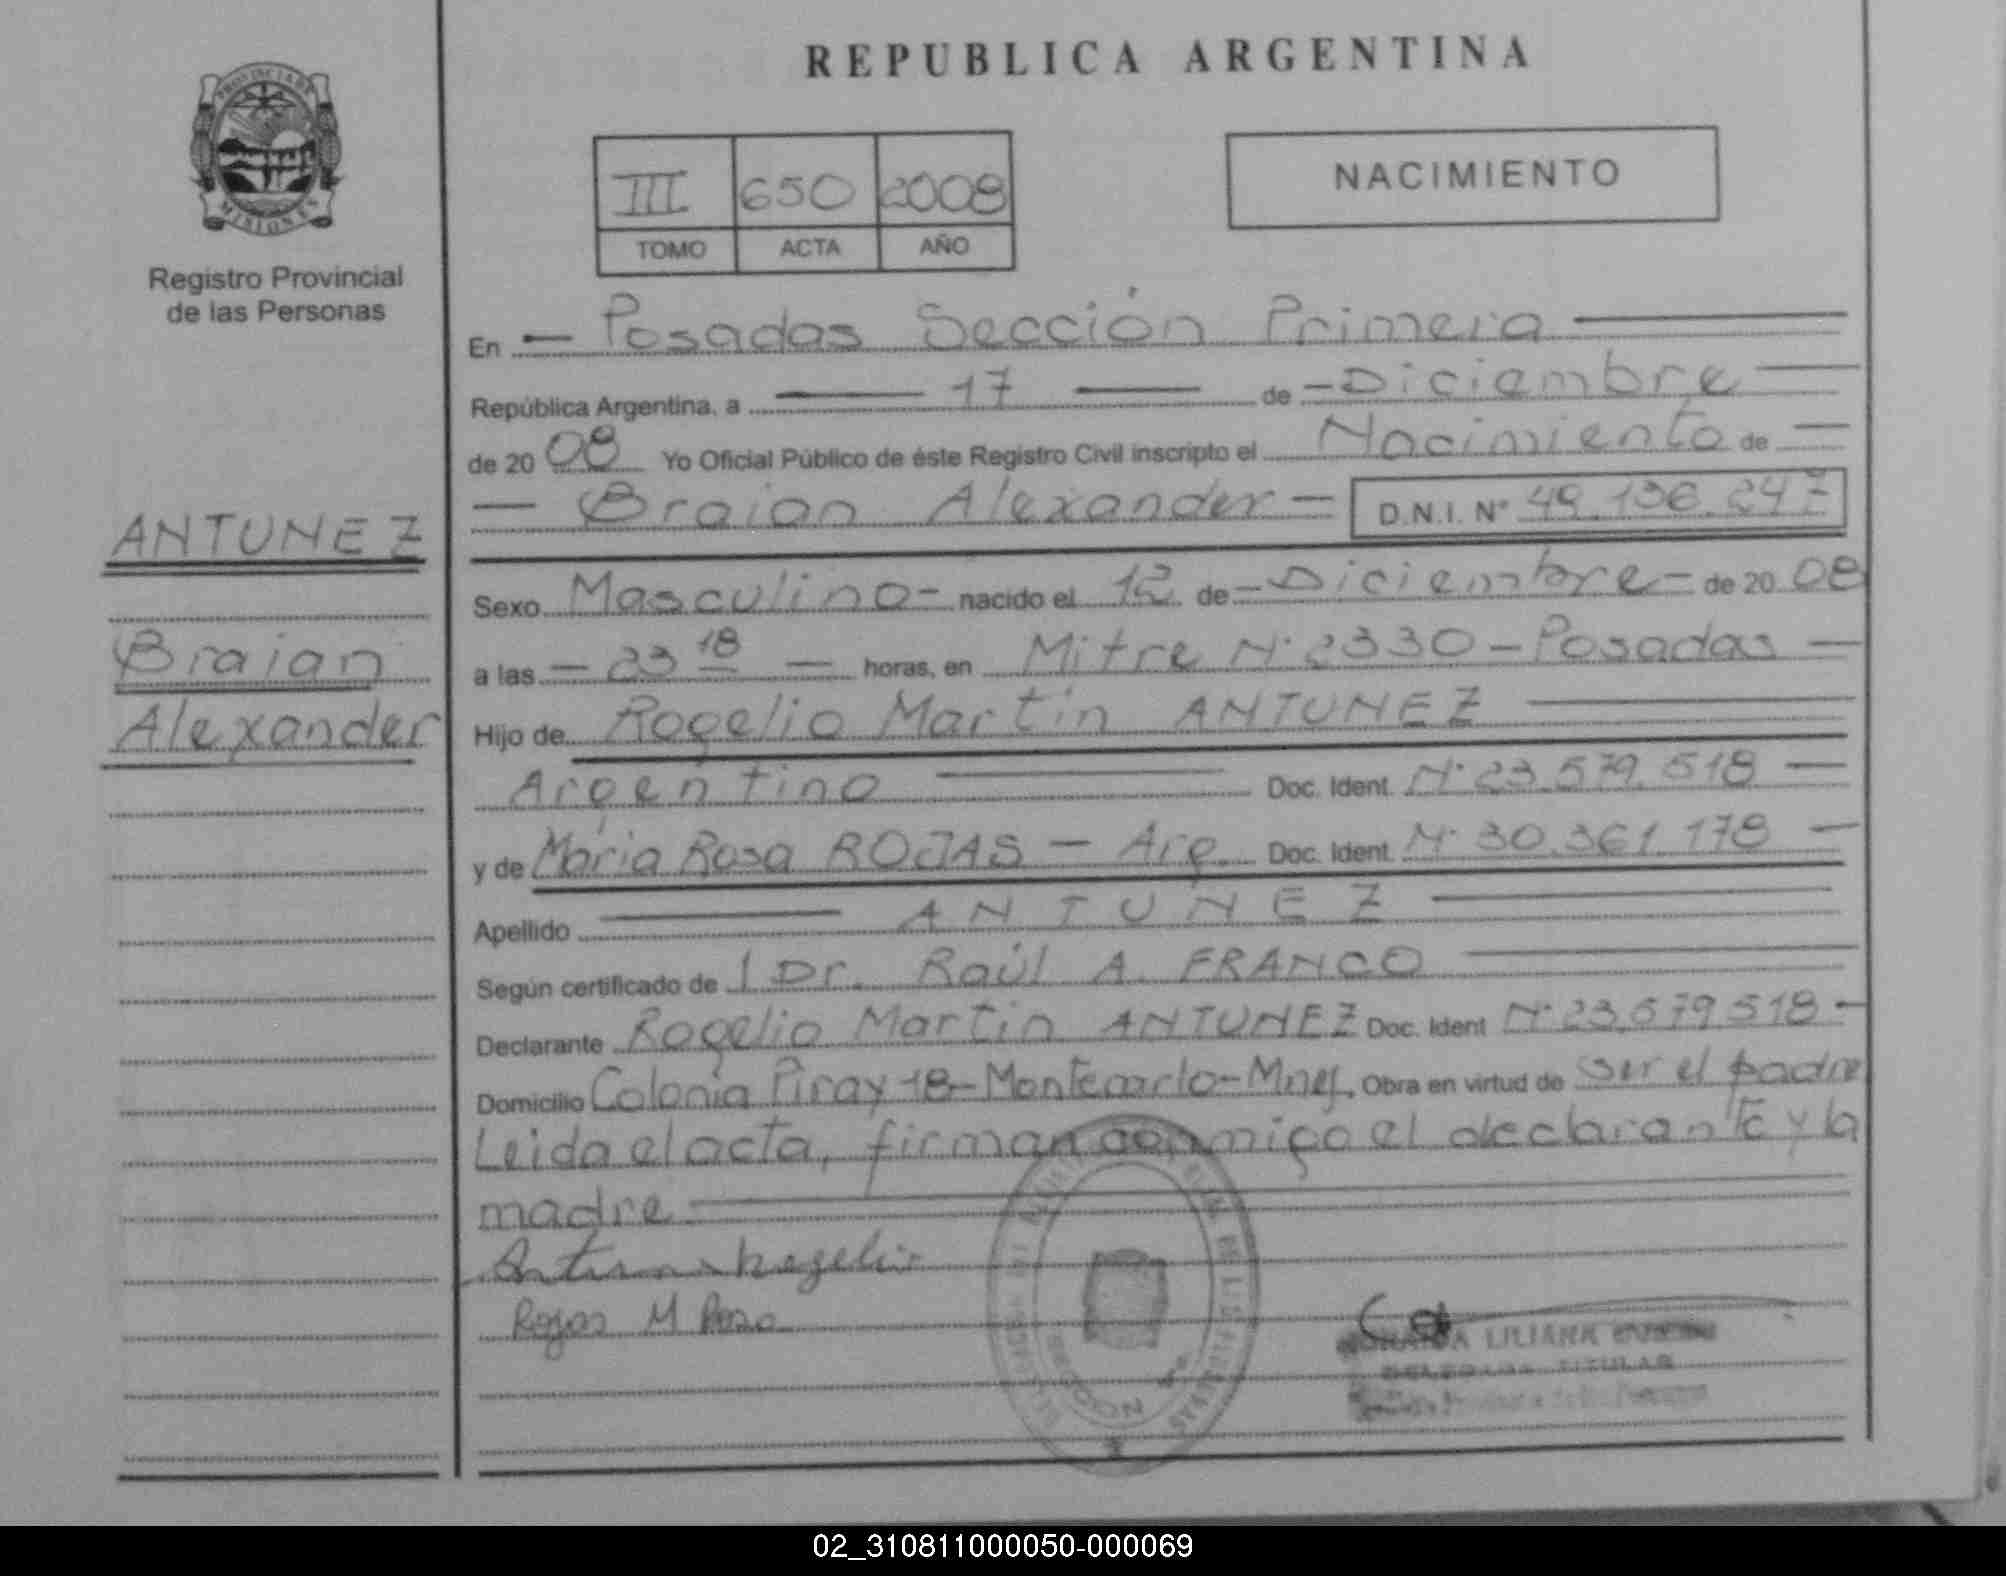 REPUBLICA ARGENTINA
PROVINCIA DE
MISIONES
Registro Provincial
de las Personas
III 650 2008
TOMO ACTA AÑO
NACIMIENTO
En - Posadas Sección Primera
República Argentina, a 17 de - Diciembre
de 20 08 Yo Oficial Público de éste Registro Civil inscripto el Nacimiento de
- Braian Alexander - D.N.I. N° 49.136.247
ANTUNEZ
Braian
Alexander
Sexo Masculino - nacido el 12 de - Diciembre - de 20 08
a las - 23 18 - horas, en Mitre N° 2330 - Posadas -
Hijo de Rogelio Martín ANTUNEZ
Argentino Doc. Ident. N° 23.579.518 -
y de María Rosa ROJAS - Arg. Doc. Ident. N° 30.361.178 -
Apellido ANTUNEZ
Según certificado de l Dr. Raúl A. FRANCO
Declarante Rogelio Martín ANTUNEZ Doc. Ident N° 23.579.518 -
Domicilio Colonia Piray 18 - Montecarlo - Mnes. Obra en virtud de ser el padre
Leida el acta, firman conmigo el declarante y la
madre
Antunez Rogelio
Rojas M Rosa
SECCION
LILIANA
TITULAR
02_310811000050-000069